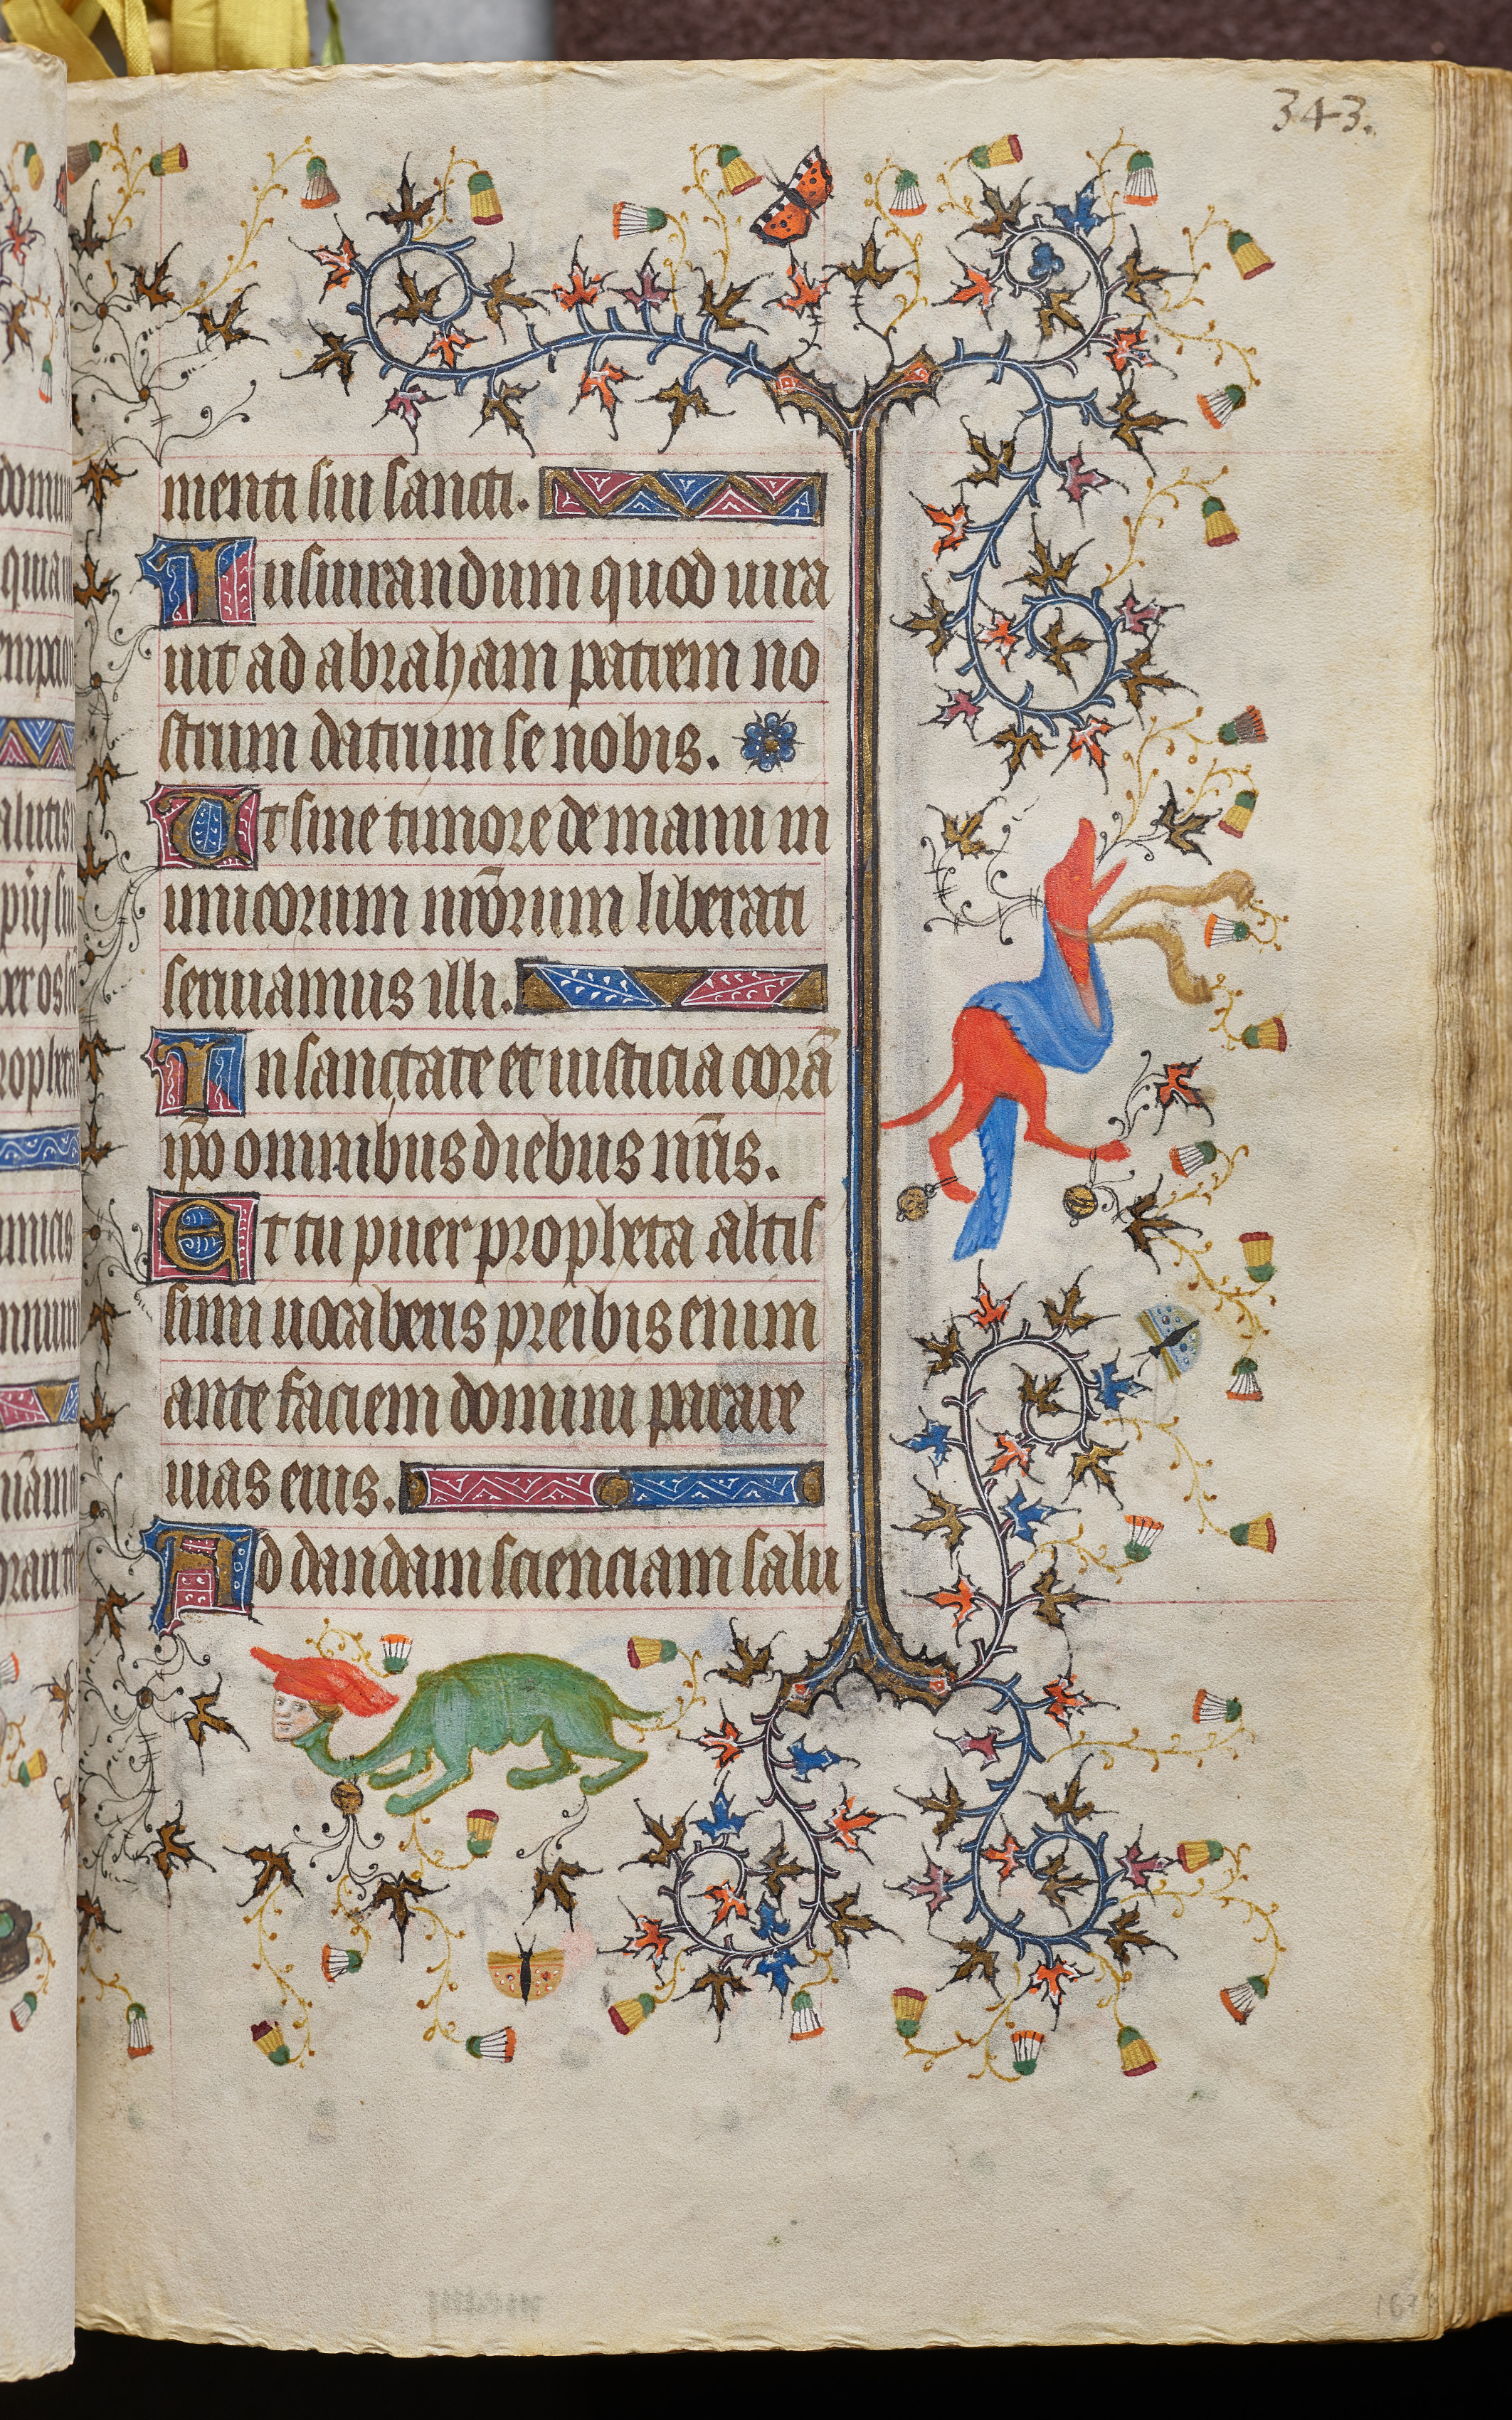 343.
menti sui sancti.
Iusiurandum quod iura
uit ad abraham patrem no
strum daturum se nobis.
Ut sine timore de manu in
imicorum nr̄orum liberati
seruiamus illi.
In sanctitate et iusticia corā
ip̄o omnibus diebus nr̄is.
Et tu puer propheta altis
simi uocaberis preibis enim
ante faciem domini parare
uias eius.
Ad dandam scienciam salu